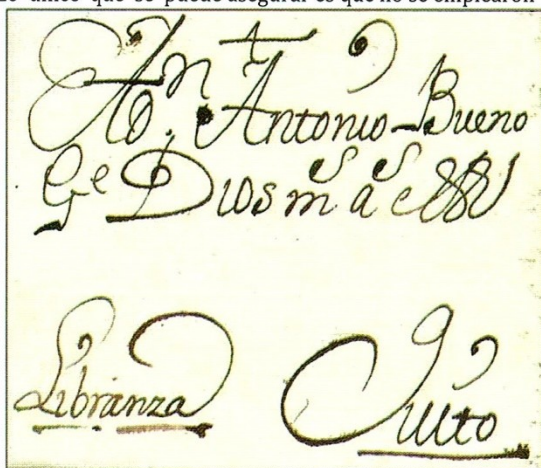 único que se puede asegurar es que no se emplearon
A Dn. Antonio Bueno
Ge Dios ms as
Libranza Quito